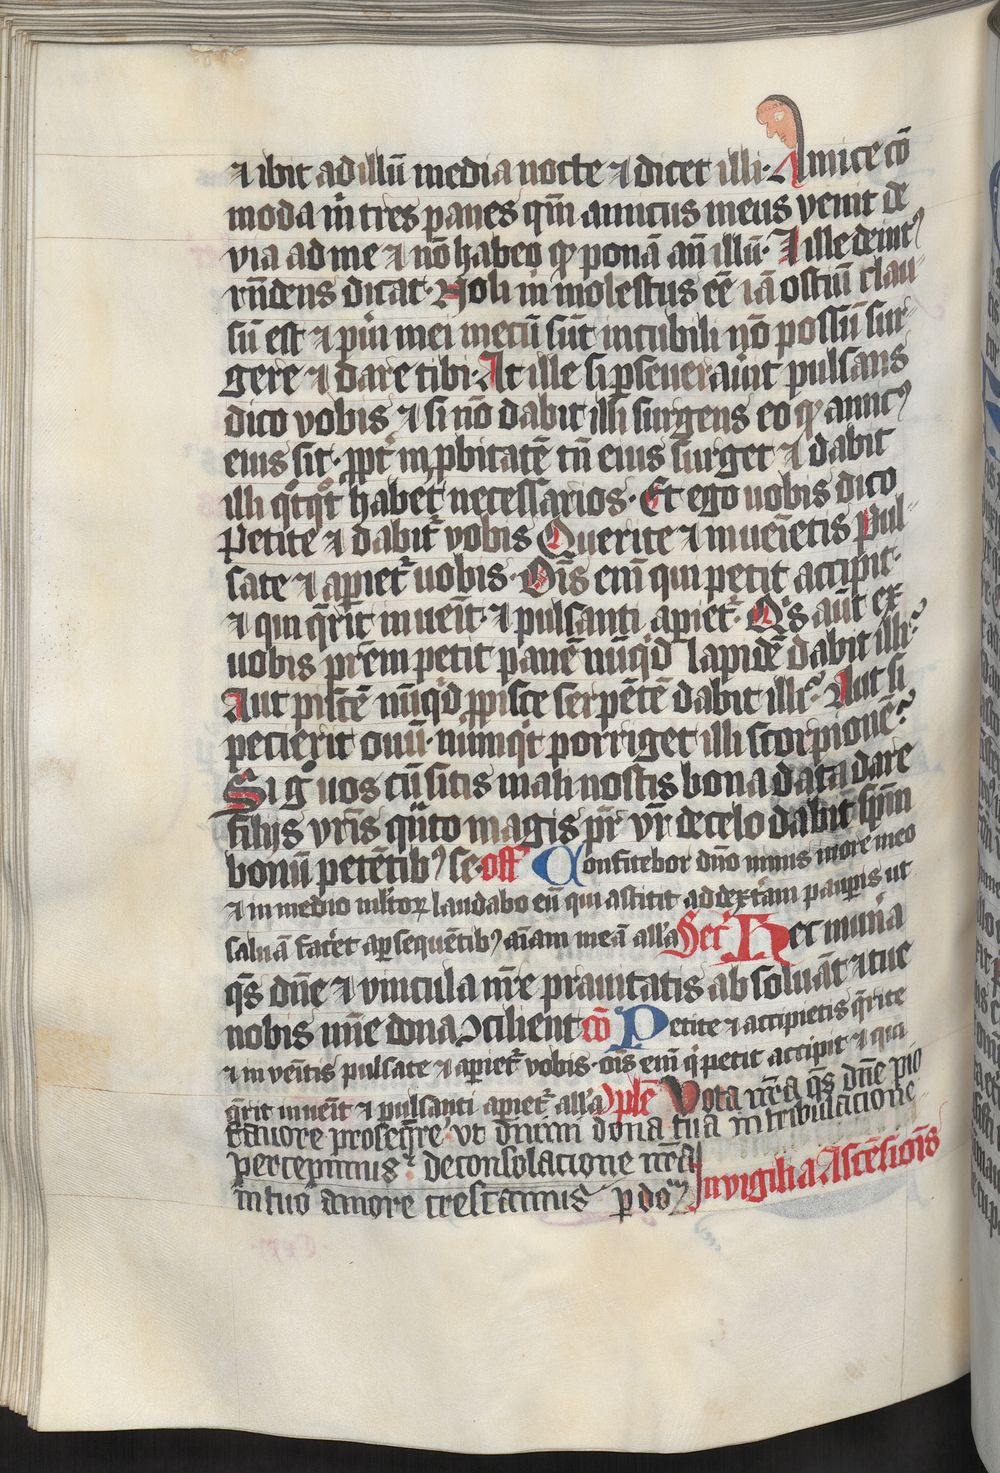 ⁊ ibit ad illū media nocte ⁊ dicet illi· Amice cō
moda m̄ tres panes qm̄ amicus meus venit de
via ad me ⁊ nō habeo qͥ ponā an̄ illū· Et ille deintꝰ
rn̄dens dicat· Noli m̄ molestus eē iā ostiū clau
sū est ⁊ pu̅i mei mecū sūt in cubili nō possū sur
gere ⁊ dare tibi· At ille si ꝑseuerau̅it pulsans
dico vobis ⁊ si nō dabit illi surgens eo qͥ amicꝰ
eius sit· ꝓpt̄ inꝓbitatē tn̄ eius surget ⁊ dabit
illi qͦtqͦt habet necessarios· Et ego uobis dico
Petite ⁊ dabit̄ vobis Querite ⁊ inueīetis Pul
sate ⁊ apiet̄ uobis· Oīs eni̅ qui petit accipit·
⁊ qui q̄rit inuenīt· ⁊ pulsanti apiet̄· Qͥs aūt ex
uobis prēm petit panē nūqͥd lapidē dabit illi?
Aut piscē nūqͥd ꝓ pisce serpētē dabit illi? Aut si
petierit ouū· nūmqͥt porriget illi scorpionē?
Si gͦ uos cū sitis mali nostis bona data dare
filijs vr̄is qͣnto magis pr̄ vr̄ de celo dabit spm̄
bonū petētibꝰ se· off̄ Confitebor dn̄o nimis in ore meo
⁊ in medio mltoꝝ laudabo eū qui astitit ad dextam pauꝑis ut
saluā faceret a ꝑsequētibꝰ aīam meā all'a Secͬ Hec mun̄a
qs̄ dn̄e ⁊ vincula nr̄e prauitatis absoluāt ⁊ tue
nobis mīe dona ꝯcilient cō Petite ⁊ accipietis q̄rite
⁊ inuēītis pulsate ⁊ apiet̄ vobis· oīs eni̅ qͥ petit accipit ⁊ qui
q̄rit inuenīt ⁊ pulsanti apiet̄ all'a ꝯplē Vota nr̄a qs̄ dn̄e pio
fauore proseq̄re· vt dum dona tua in tribulacione
percepimus· de consolacione nr̄a
in tuo amore crescamus p dō In vigilia Ascēsiōis